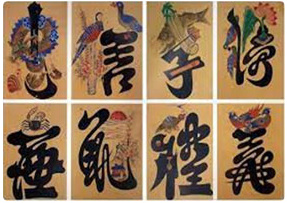 忠信孝悌
廉恥禮義